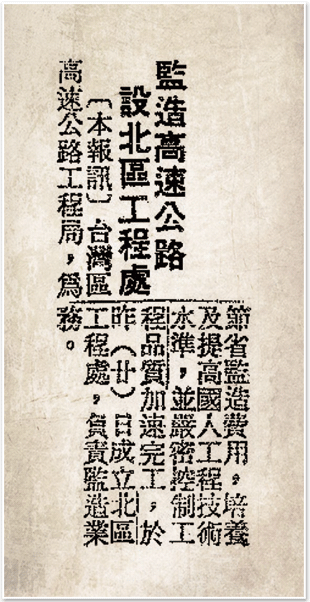 監造高速公路
設北區工程處
〔本報訊〕台灣區
高速公路工程局，為
節省監造費用，培養
及提高國人工程技術
水準，並嚴密控制工
程品質加速完工，於
昨（廿）日成立北區
工程處，負責監造業
務。